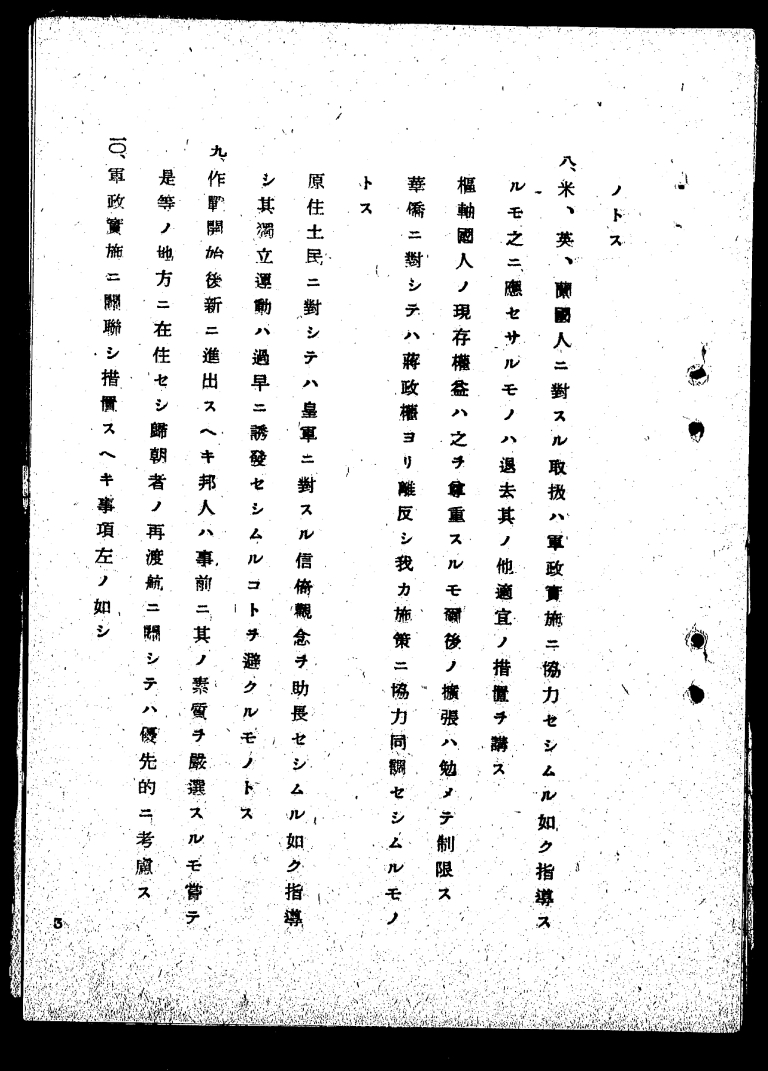 ノトス
八、米、英、蘭國人ニ對スル取扱ハ軍政實施ニ協力セシムル如ク指導ス
ルモ之ニ應セサルモノハ退去其ノ他適宜ノ措置ヲ講ス
樞軸國人ノ現存權益ハ之ヲ尊重スルモ爾後ノ擴張ハ勉メテ制限ス
華僑ニ對シテハ蔣政權ヨリ離反シ我カ施策ニ協力同調セシムルモノ
トス
原住土民ニ對シテハ皇軍ニ對スル信倚觀念ヲ助長セシムル如ク指導
シ其獨立運動ハ過早ニ誘發セシムルコトヲ避クルモノトス
九、作戰開始後新ニ進出スヘキ邦人ハ事前ニ其ノ素質ヲ嚴選スルモ嘗テ
是等ノ地方ニ在住セシ歸朝者ノ再渡航ニ關シテハ優先的ニ考慮ス
一〇、軍政實施ニ關聯シ措置スヘキ事項左ノ如シ
3